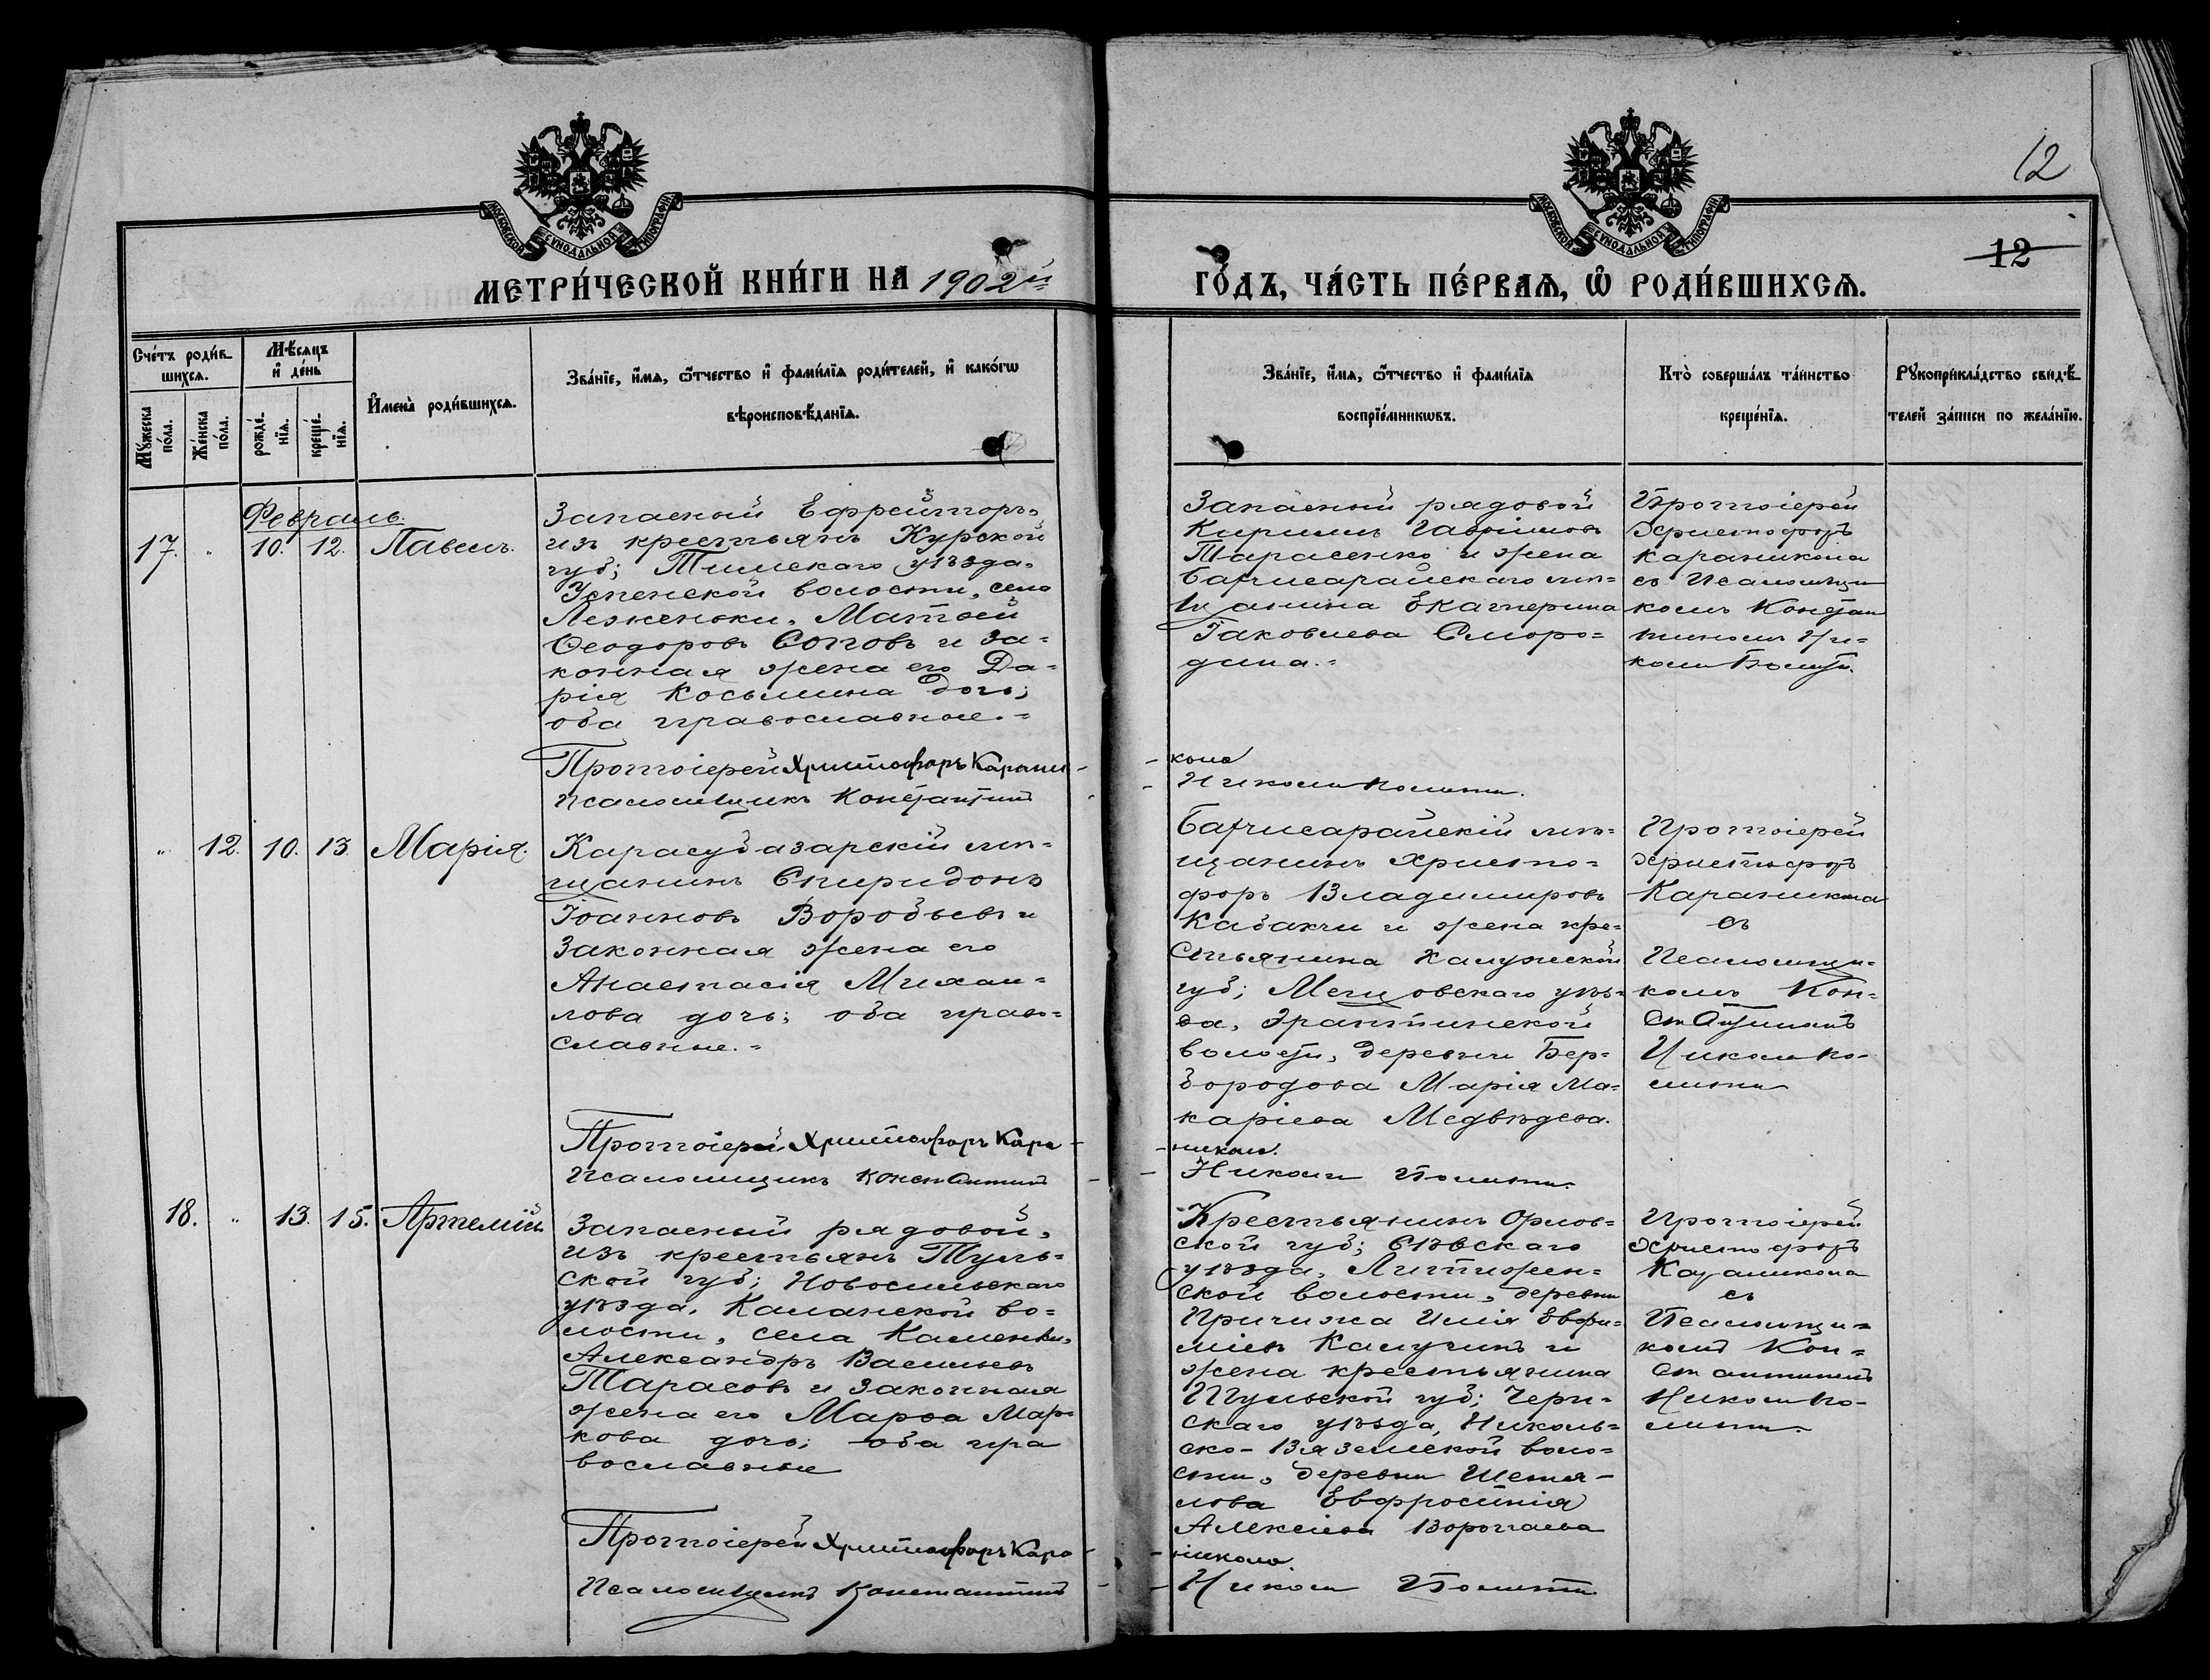 12
12
МОСКОВСКОЙ СѴНОДАЛЬНОЙ ТИПОГРАФІИ
МОСКОВСКОЙ СѴНОДАЛЬНОЙ ТИПОГРАФІИ
МЕТРИ́ЧЕСКОЙ КНИ́ГИ НА 1902й
ГО́ДЪ, ЧА́СТЬ ПЕ́РВАѦ, Ѽ РОДИ́ВШИХСѦ.
Сче́тъ роди́в-
шихсѧ.
Мꙋжеска
по́ла.
Же́нска
по́ла.
Мѣ́сѧцъ
и҆ де́нь
рожде́-
нїѧ.
креще́-
нїѧ.
И҆мена̀ роди́вшихсѧ.
Зва́нїе, и҆́мѧ, ѻ҆́тчество и҆ фами́лїѧ роди́телей, и҆ како́гѡ
вѣроисповѣ́данїѧ.
Зва́нїе, и҆́мѧ, ѻ҆́тчество и҆ фами́лїѧ
воспрїе́мникѡвъ.
Кто̀ соверша́лъ та́инство
креще́нїѧ.
Рꙋкоприкла́дство свидѣ́-
телей за́писи по жела́нїю.
Февраль.
17. " 10. 12. Павелъ.
Запасный Ефрейторъ,
изъ крестьянъ Курской
губ; Тимскаго уѣзда,
Успенской волости, села
Леженьки, Матѳей
Ѳеодоровъ Соповъ и за-
конная жена его Да-
рія Косьмина дочь;
оба православные.=
Запасный рядовой
Кириллъ Гавріиловъ
Тарасенко и жена
Бахчисарайскаго мѣ-
щанина Екатерина
Іаковлева Сморо-
дина.=
Протоіерей
Христофоръ
Караникола
съ Псаломщи
комъ Констан
тиномъ Ни-
коли Полити.
Протоіерей Христофоръ Карани-
-кола
Псаломщикъ Константинъ -
- Николи Полити.
" 12. 10. 13. Марія.
Карасубазарскій мѣ-
щанинъ Спиридонъ
Іоанновъ Воробьевъ и
законная жена его
Анастасія Михаи-
лова дочь; оба право-
славные.=
Бахчисарайскій мѣ-
щанинъ Христо-
форъ Владимировъ
Кабакчи и жена кре-
стьянина Калужской
губ; Мещовскаго уѣз-
да,
волости, деревни Бер-
бородова Марія Ма-
каріева Медвѣдева.
Протоіерей
Христофоръ
Караникола
съ
Псаломщи-
комъ Кон-
стантиномъ
Николи По-
лити
Протоіерей Христофоръ Кара -
-никола.
Псаломщикъ Константинъ -
- Николи Полити.
18. " 13. 15. Артемій
Запасный рядовой,
изъ крестьянъ Туль-
ской губ; Новосильскаго
уѣзда, Каланской во-
лости, села Каменки,
Александръ Васильевъ
Тарасовъ и законная
жена его Марѳа Мар-
кова дочь; оба пра
вославные
Крестьянинъ Орлов-
ской губ; Сѣвскаго
уѣзда, Литижен-
ской волости, деревни
Причижа Илія Евѳи-
міевъ Калугинъ и
жена крестьянина
Тульской губ; Черн-
скаго уѣзда, Николь-
ско-Вяземской воло-
сти, деревни
Евфросинія
Алексіева Воропаева
Протоіерей
Христофоръ
Караникола
съ
Псаломщи-
комъ Кон-
стантиномъ
Николи По-
лити.
Протоіерей Христофоръ Кара -
-никола.
Псаломщикъ Константинъ -
- Николи Полити